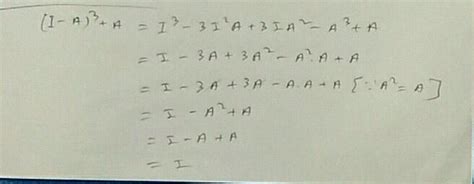 (I - A)³ + A = I³ - 3I²A + 3IA² - A³ + A
= I - 3A + 3A² - A².A + A
= I - 3A + 3A - A.A + A [∵ A² = A]
= I - A² + A
= I - A + A
= I